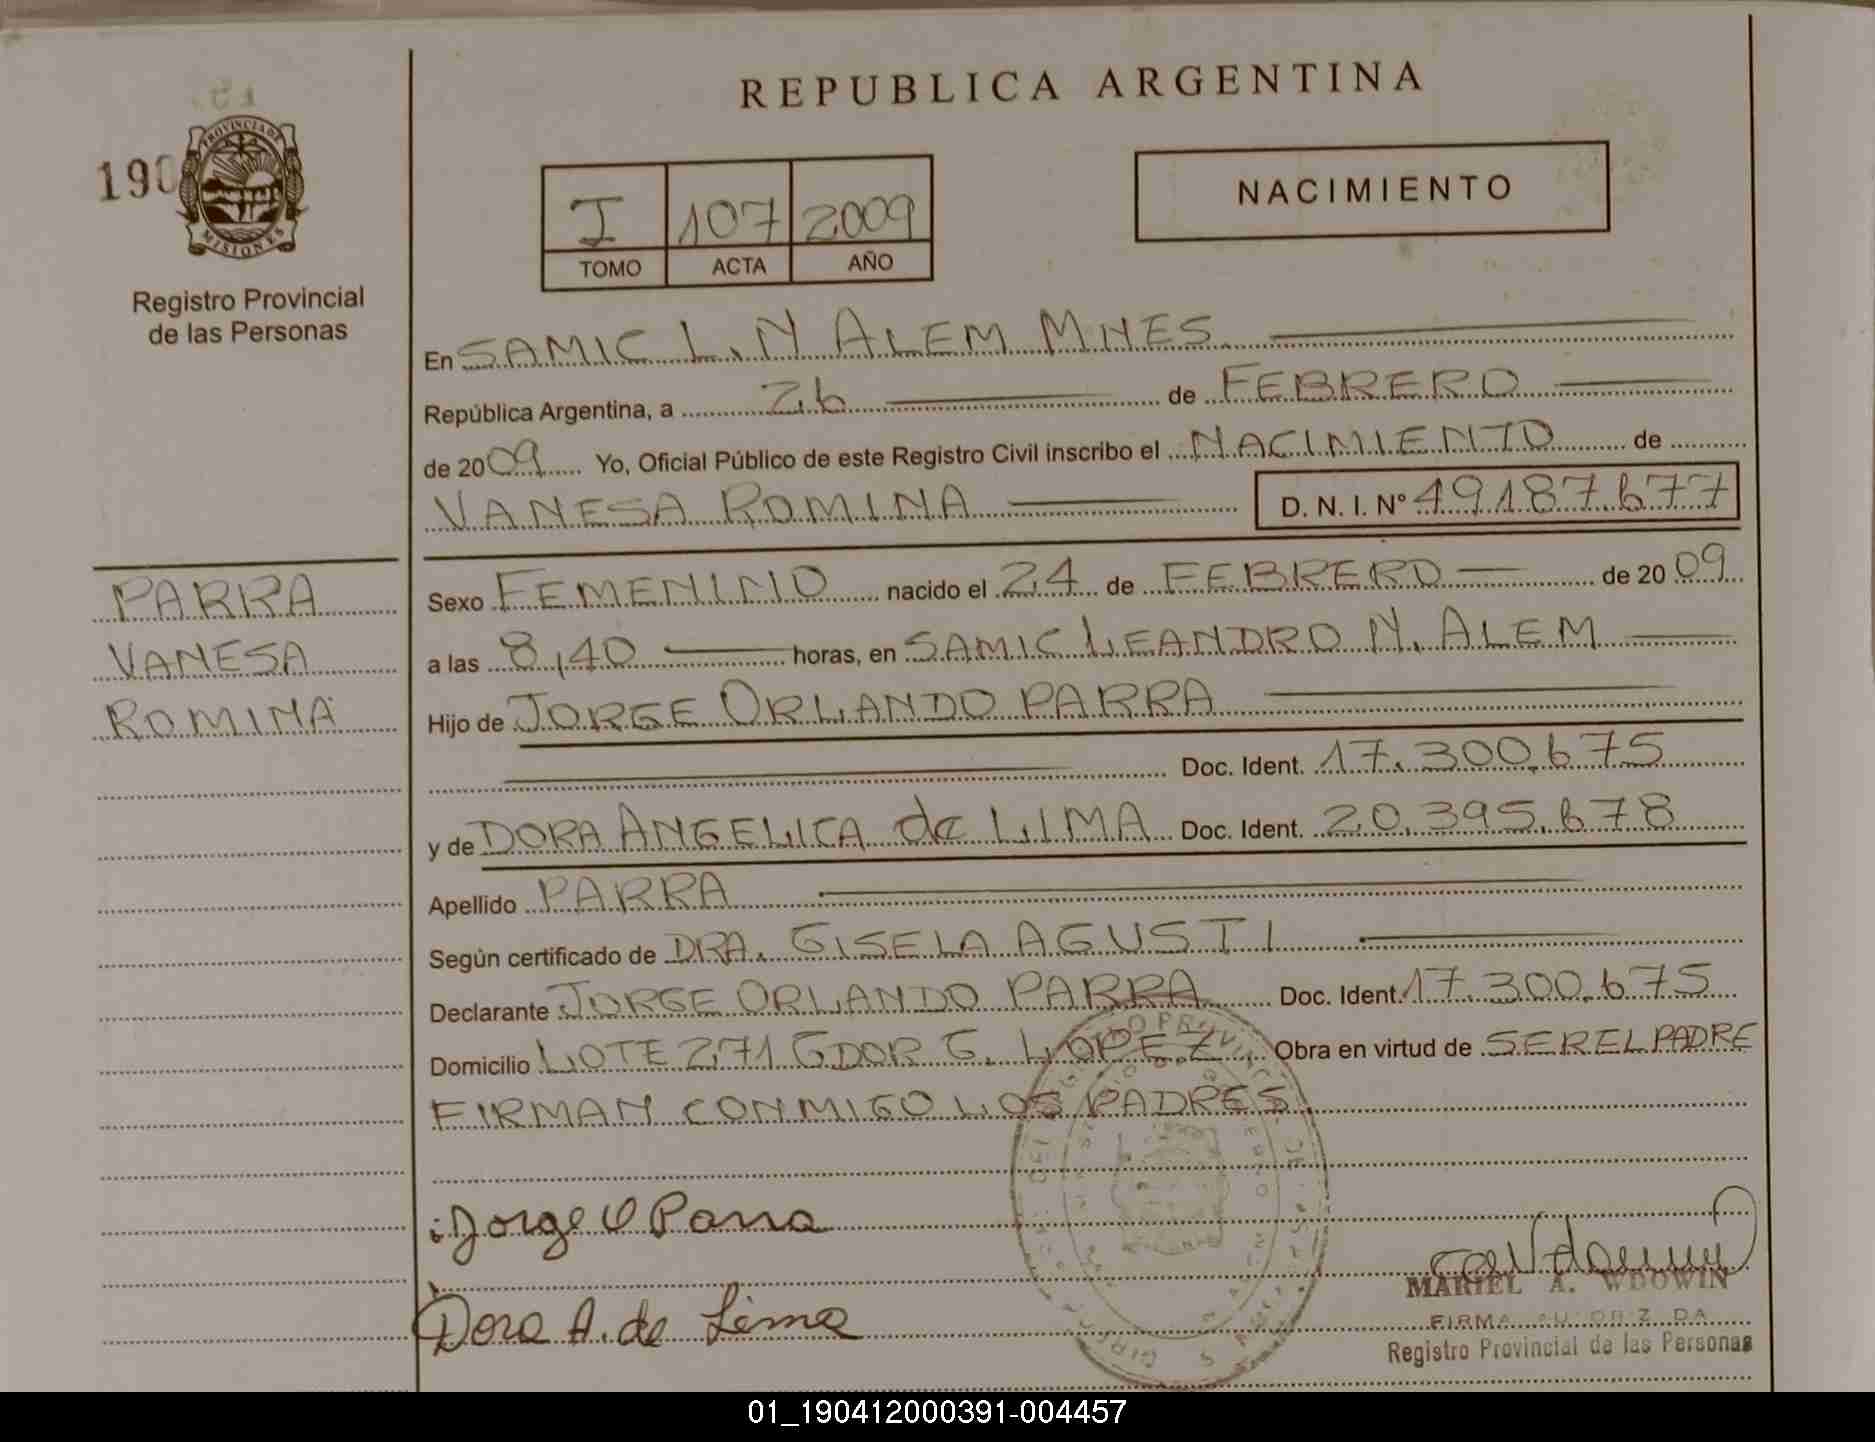 REPUBLICA ARGENTINA
190
PROVINCIA DE
MISIONES
Registro Provincial
de las Personas
I 107 2009
TOMO ACTA AÑO
NACIMIENTO
En SAMIC L.N ALEM MNES
República Argentina, a 26 de FEBRERO
de 2009 Yo, Oficial Público de este Registro Civil inscribo el NACIMIENTO de
VANESA ROMINA D. N. I. N° 49187.677
PARRA
VANESA
ROMINA
Sexo FEMENINO nacido el 24 de FEBRERO de 2009
a las 8,40 horas, en SAMIC LEANDRO N. ALEM
Hijo de JORGE ORLANDO PARRA
Doc. Ident. 17.300.675
y de DORA ANGELICA de LIMA Doc. Ident. 20.395.678
Apellido PARRA
Según certificado de DRA. GISELA AGUSTI
Declarante JORGE ORLANDO PARRA Doc. Ident. 17.300.675
Domicilio LOTE 271 GDOR G. LOPEZ Obra en virtud de SER EL PADRE
FIRMAN CONMIGO LOS PADRES
Jorge O Parra
Dora A. de Lima
MARIEL A. WDOWIN
FIRMA AUTORIZADA
Registro Provincial de las Personas
01_190412000391-004457